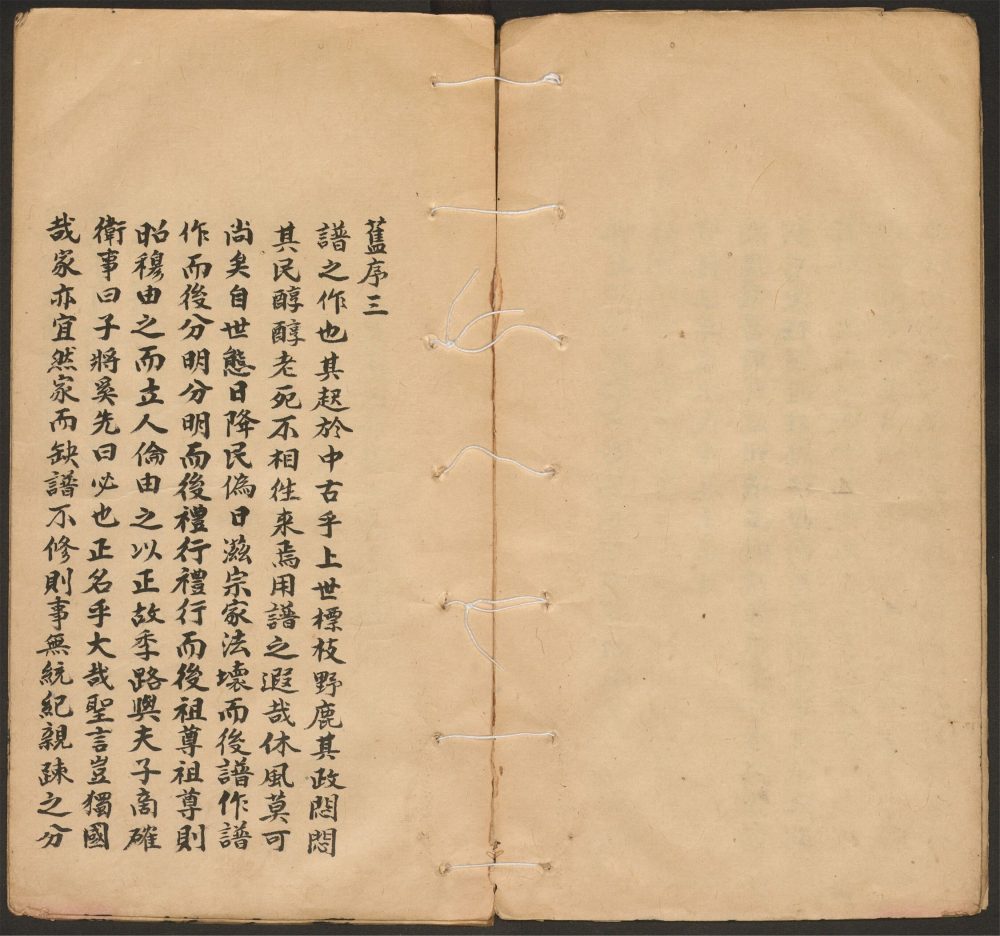 舊序三
譜之作也其起於中古乎上世標枝野鹿其政悶悶
其民醇醇老死不相徃來焉用譜之遐哉休風莫可
尚矣自世態日降民偽日滋宗家法壞而後譜作譜
作而後分明分明而後禮行禮行而後祖尊祖尊則
昭穆由之而立人倫由之以正故季路與夫子商確
衛事曰子將奚先曰必也正名乎大哉聖言豈獨國
哉家亦宜然家而缺譜不修則事無統紀親踈之分